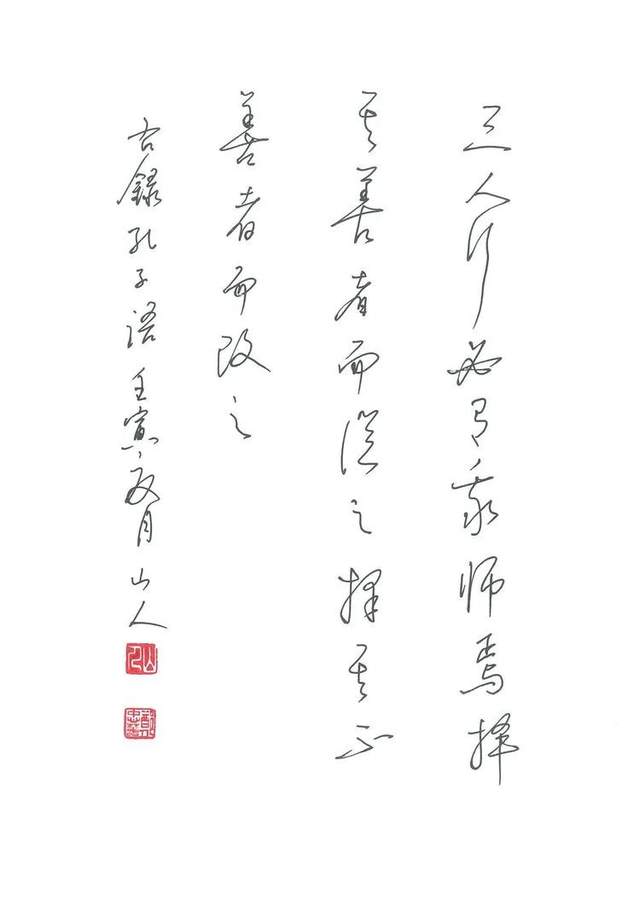 三人行必有我师焉择
其善者而從之择其不
善者而改之
右録孔子語壬寅夏月山人
山人